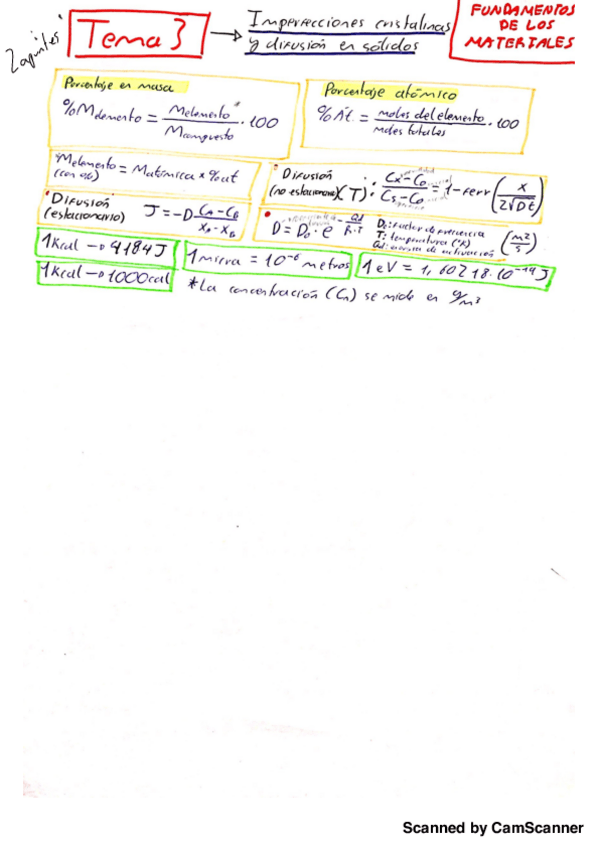 2apuntes
Tema 3 → Imperfecciones cristalinas
y difusión en sólidos
FUNDAMENTOS
DE LOS
MATERIALES
Porcentaje en masa
%Melemento = Melemento / Mcompuesto · 100
Porcentaje atómico
%At. = moles del elemento / moles totales · 100
Melemento = Matómica x %at
(con at)
Difusión
(no estacionario)(T): Cx-C0 / Cs-C0 = 1-ferr (x / 2√Dt)
Difusión
(estacionario) J = -D CA-CB / XA-XB
D = D0 · e^-Qd/R·T
D0: factor de frecuencia
T: temperatura (ºK)
Qd: energía de activación
(m²/s)
1Kcal → 4184J
1 micra = 10^-6 metros
1 eV = 1,60218·10^-19 J
1Kcal → 1000cal
*La concentración (Cn) se mide en g/m³
Scanned by CamScanner